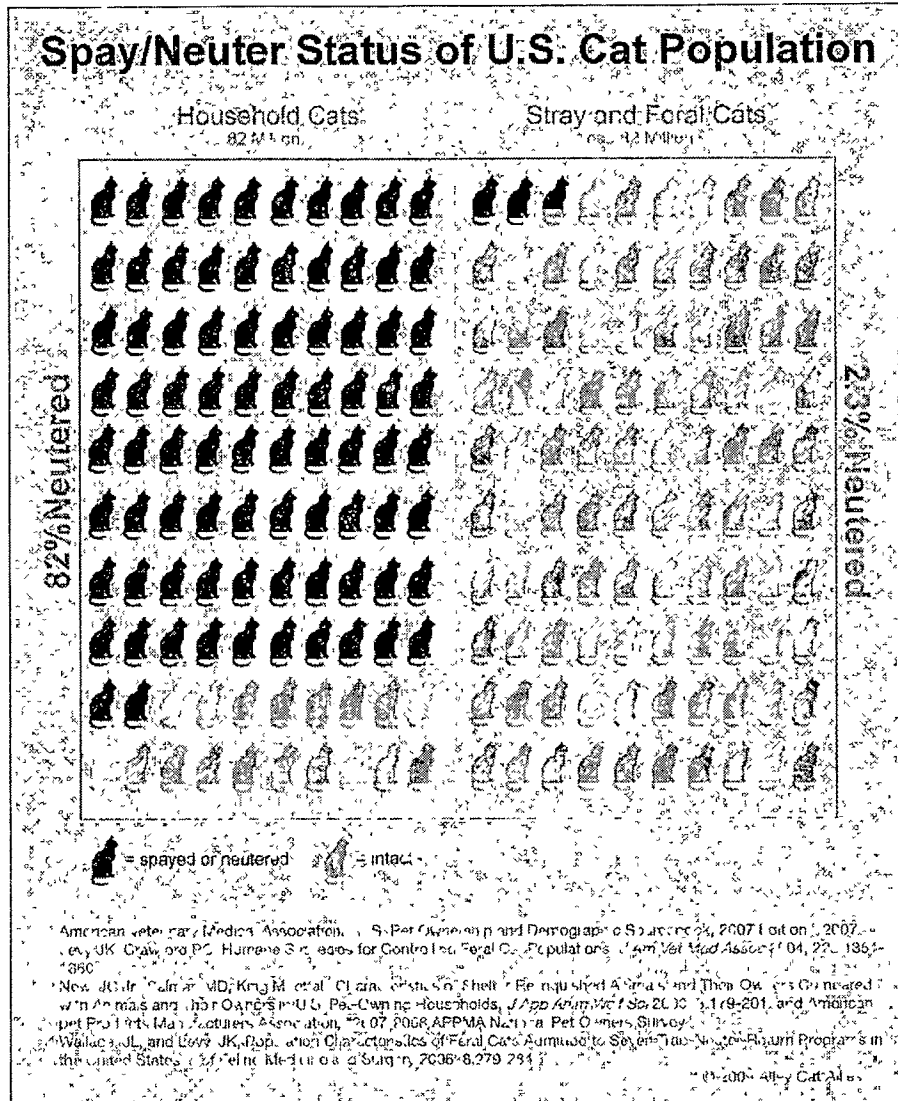 Spay/Neuter Status of U.S. Cat Population
Household Cats
82
Stray and Feral Cats
82 Million
82% Neutered
Neutered
= spayed or neutered
= intact
American Veterinary Medical Association, U.S. Pet Ownership and Demographic Sourcebook, 2007 Edition, 2007.
Levy JK, Crawford PC, Humane Strategies for Controlling Feral Cat Populations, J Am Vet Med Assoc
1360
New JC Jr, Salman MD, King M, et al, Characteristics of Shelter Relinquished Animals and Their Owners Compared
with Animals and Their Owners in U.S. Pet-Owning Households, and American
Pet Products Manufacturers Association, APPMA National Pet Owners Survey
Wallace JL, and Levy JK, Population Characteristics of Feral Cats Admitted to Seven Trap-Neuter-Return Programs in
the United States, J of Feline Medicine and Surgery,
Alley Cat Allies